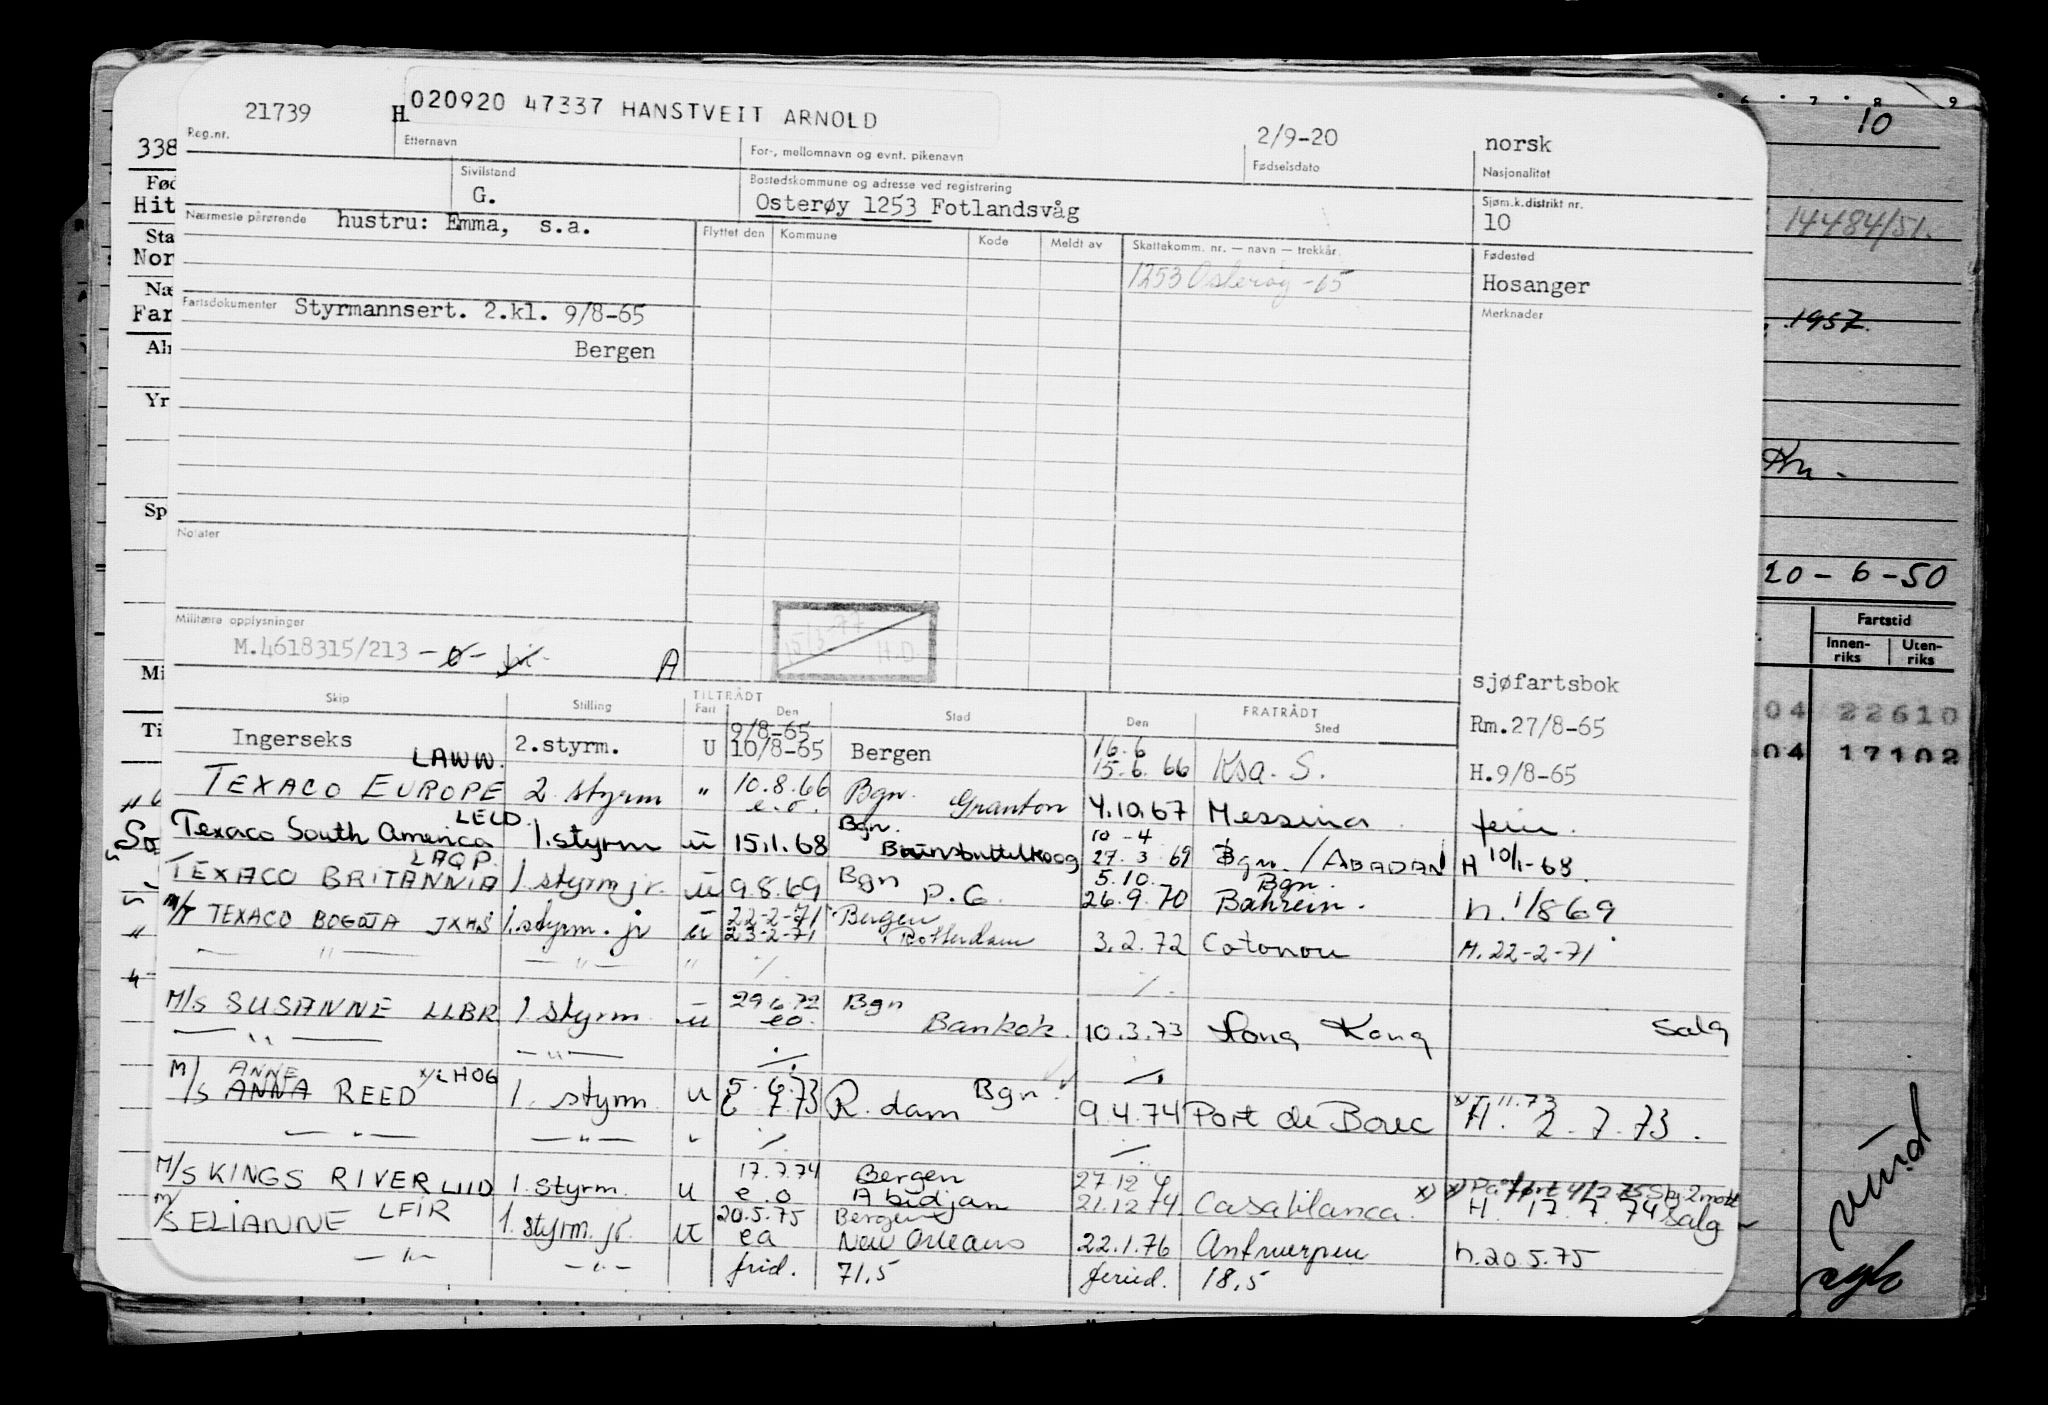 10
21739 H 020920 47337 HANSTVEIT ARNOLD 2/9-20 norsk
Reg.nr. Etternavn For-, mellomnavn og evnt. pikenavn Fødselsdato Nasjonalitet
Sivilstand Bostedskommune og adresse ved registrering Sjøm.k.distrikt nr.
G. Osterøy 1253 Fotlandsvåg 10
Nærmeste pårørende hustru: Emma, s.a.
Flyttet den Kommune Kode Meldt av Skattekomm. nr. — navn — trekkår. Fødested
1253 Osterøy -65 Hosanger
Fartsdokumenter Styrmannsert. 2.kl. 9/8-65 Merknader
Bergen
Notater
Militære opplysninger
M.4618315/213 -ø- A
15/3-77 H.D.
sjøfartsbok
Skip Stilling TILTRÅDT Fart Den Sted FRATRÅDT Den Sted
9/8-65 Rm.27/8-65
Ingerseks 2.styrm. U 10/8-65 Bergen 16.6 15.6.66 Ksa. S. H.9/8-65
LAWW.
TEXACO EUROPE 2 styrm " 10.8.66 e.o. Bgn. Granton 4.10.67 Messina. ferie.
LELD.
Texaco South America 1.styrm u 15.1.68 Bgn. Brunsbuttelkoog 10-4 27.3.69 Bgn./ABADAN H 10/1-68.
LAQP.
TEXACO BRITANNIA 1 styrm jr. u 9.8.69 Bgn P.G. 5.10. 26.9.70 Bgn. Bahrein. h. 1/869
M/T TEXACO BOGOTA JXHS 1.styrm. jr u 22-2-71 23-2-71 Bergen Rotterdam 3.2.72 Cotonou M.22-2-71
— " — — " — " ./. ./.
M/S SUSANNE LLBR 1 styrm u 29.6.72 eo. Bgn Bankok. 10.3.73 Hong Kong salg
— " — — " — ./. ./.
M/S ANNE ANNA REED x/LHOG 1. styrm u 5.6.73 6 7 73 R.dam Bgn. 9.4.74 Port de Bouc x) 1.11.73 H. 2.7.73.
— " — — " — " ./. ./.
M/S KINGS RIVER LIID 1.styrm. u 17.7.74 e.o Bergen Abidjan 27.12 4 21.12 74 Casablanca. x) H. 17.7.74 salg
M/S ELIANNE LFIR 1. styrm. jr. u 20.5.75 ea Bergen New Orleans 22.1.76 Antwerpen h.20.5.75
— " — — " — frid. 71,5 feried. 18,5
338
Fød
Hit
Sta
Nor
Næ
Far
Alr
Yr
Sp
Mi
Ti
14484/51.
1957.
20-6-50
Fartstid
Innen-riks Uten-riks
04 22610
04 17102